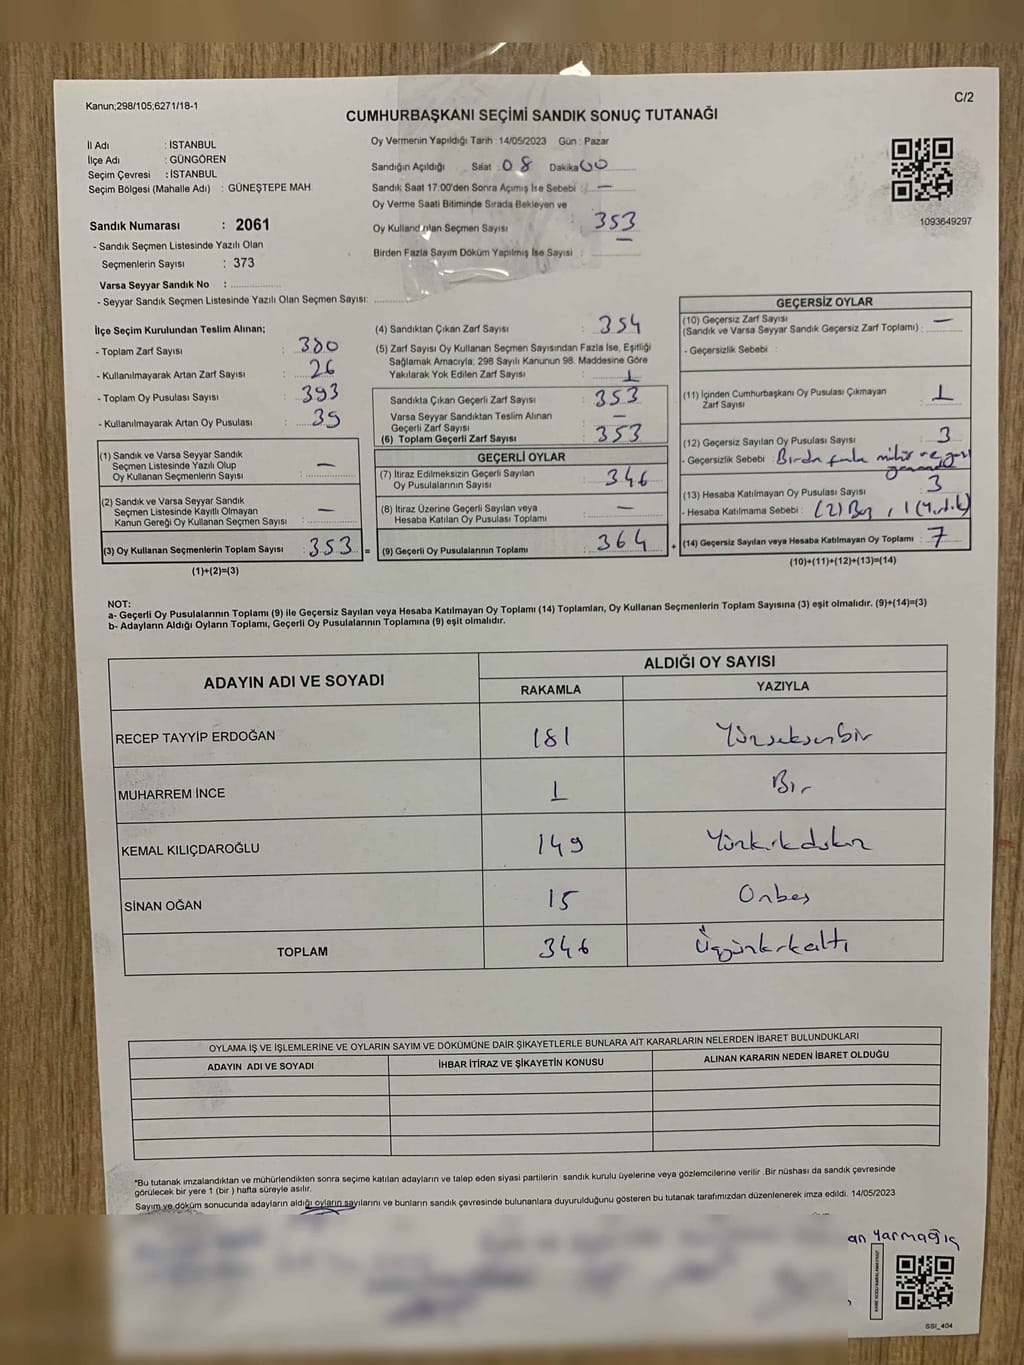 Kanun;298/105;6271/18-1
C/2
CUMHURBAŞKANI SEÇİMİ SANDIK SONUÇ TUTANAĞI
İl Adı : İSTANBUL
İlçe Adı : GÜNGÖREN
Seçim Çevresi : İSTANBUL
Seçim Bölgesi (Mahalle Adı) : GÜNEŞTEPE MAH.
Sandık Numarası : 2061
- Sandık Seçmen Listesinde Yazılı Olan
Seçmenlerin Sayısı : 373
Varsa Seyyar Sandık No :
- Seyyar Sandık Seçmen Listesinde Yazılı Olan Seçmen Sayısı:
Oy Vermenin Yapıldığı Tarih : 14/05/2023 Gün : Pazar
Sandığın Açıldığı Saat : 08 Dakika 00
Sandık Saat 17:00'den Sonra Açımış İse Sebebi : —
Oy Verme Saati Bitiminde Sırada Bekleyen ve
Oy Kullandırılan Seçmen Sayısı 353
Birden Fazla Sayım Döküm Yapılmış İse Sayısı : —
1093649297
İlçe Seçim Kurulundan Teslim Alınan;
- Toplam Zarf Sayısı : 380
- Kullanılmayarak Artan Zarf Sayısı : 26
- Toplam Oy Pusulası Sayısı : 393
- Kullanılmayarak Artan Oy Pusulası : 39
(1) Sandık ve Varsa Seyyar Sandık
Seçmen Listesinde Yazılı Olup
Oy Kullanan Seçmenlerin Sayısı : —
(2) Sandık ve Varsa Seyyar Sandık
Seçmen Listesinde Kayıtlı Olmayan
Kanun Gereği Oy Kullanan Seçmen Sayısı : —
(3) Oy Kullanan Seçmenlerin Toplam Sayısı : 353 =
(1)+(2)=(3)
(4) Sandıktan Çıkan Zarf Sayısı : 354
(5) Zarf Sayısı Oy Kullanan Seçmen Sayısından Fazla İse, Eşitliği
Sağlamak Amacıyla; 298 Sayılı Kanunun 98. Maddesine Göre
Yakılarak Yok Edilen Zarf Sayısı : 1
Sandıkta Çıkan Geçerli Zarf Sayısı : 353
Varsa Seyyar Sandıktan Teslim Alınan
Geçerli Zarf Sayısı : —
(6) Toplam Geçerli Zarf Sayısı : 353
GEÇERLİ OYLAR
(7) İtiraz Edilmeksizin Geçerli Sayılan
Oy Pusulalarının Sayısı : 346
(8) İtiraz Üzerine Geçerli Sayılan veya
Hesaba Katılan Oy Pusulası Toplamı : —
(9) Geçerli Oy Pusulalarının Toplamı : 364 +
GEÇERSİZ OYLAR
(10) Geçersiz Zarf Sayısı —
(Sandık ve Varsa Seyyar Sandık Geçersiz Zarf Toplamı) :
- Geçersizlik Sebebi :
(11) İçinden Cumhurbaşkanı Oy Pusulası Çıkmayan
Zarf Sayısı : 1
(12) Geçersiz Sayılan Oy Pusulası Sayısı : 3
- Geçersizlik Sebebi : Birden fazla mühür ve
(13) Hesaba Katılmayan Oy Pusulası Sayısı : 3
- Hesaba Katılmama Sebebi : (2) Boş, 1 (Yırtık)
(14) Geçersiz Sayılan veya Hesaba Katılmayan Oy Toplamı : 7
(10)+(11)+(12)+(13)=(14)
NOT:
a- Geçerli Oy Pusulalarının Toplamı (9) ile Geçersiz Sayılan veya Hesaba Katılmayan Oy Toplamı (14) Toplamları, Oy Kullanan Seçmenlerin Toplam Sayısına (3) eşit olmalıdır. (9)+(14)=(3)
b- Adayların Aldığı Oyların Toplamı, Geçerli Oy Pusulalarının Toplamına (9) eşit olmalıdır.
ADAYIN ADI VE SOYADI ALDIĞI OY SAYISI
RAKAMLA YAZIYLA
RECEP TAYYİP ERDOĞAN 181 Yüzseksenbir
MUHARREM İNCE 1 Bir
KEMAL KILIÇDAROĞLU 149 Yüzkırkdokuz
SİNAN OĞAN 15 Onbeş
TOPLAM 346 Üçyüzkırkaltı
OYLAMA İŞ VE İŞLEMLERİNE VE OYLARIN SAYIM VE DÖKÜMÜNE DAİR ŞİKAYETLERLE BUNLARA AİT KARARLARIN NELERDEN İBARET BULUNDUKLARI
ADAYIN ADI VE SOYADI İHBAR İTİRAZ VE ŞİKAYETİN KONUSU ALINAN KARARIN NEDEN İBARET OLDUĞU
*Bu tutanak imzalandıktan ve mühürlendikten sonra seçime katılan adayların ve talep eden siyasi partilerin sandık kurulu üyelerine veya gözlemcilerine verilir .Bir nüshası da sandık çevresinde
görülecek bir yere 1 (bir ) hafta süreyle asılır.
Sayım ve döküm sonucunda adayların aldığı oyların sayılarını ve bunların sandık çevresinde bulunanlara duyurulduğunu gösteren bu tutanak tarafımızdan düzenlenerek imza edildi. 14/05/2023
an Yarmağış
SSI_404